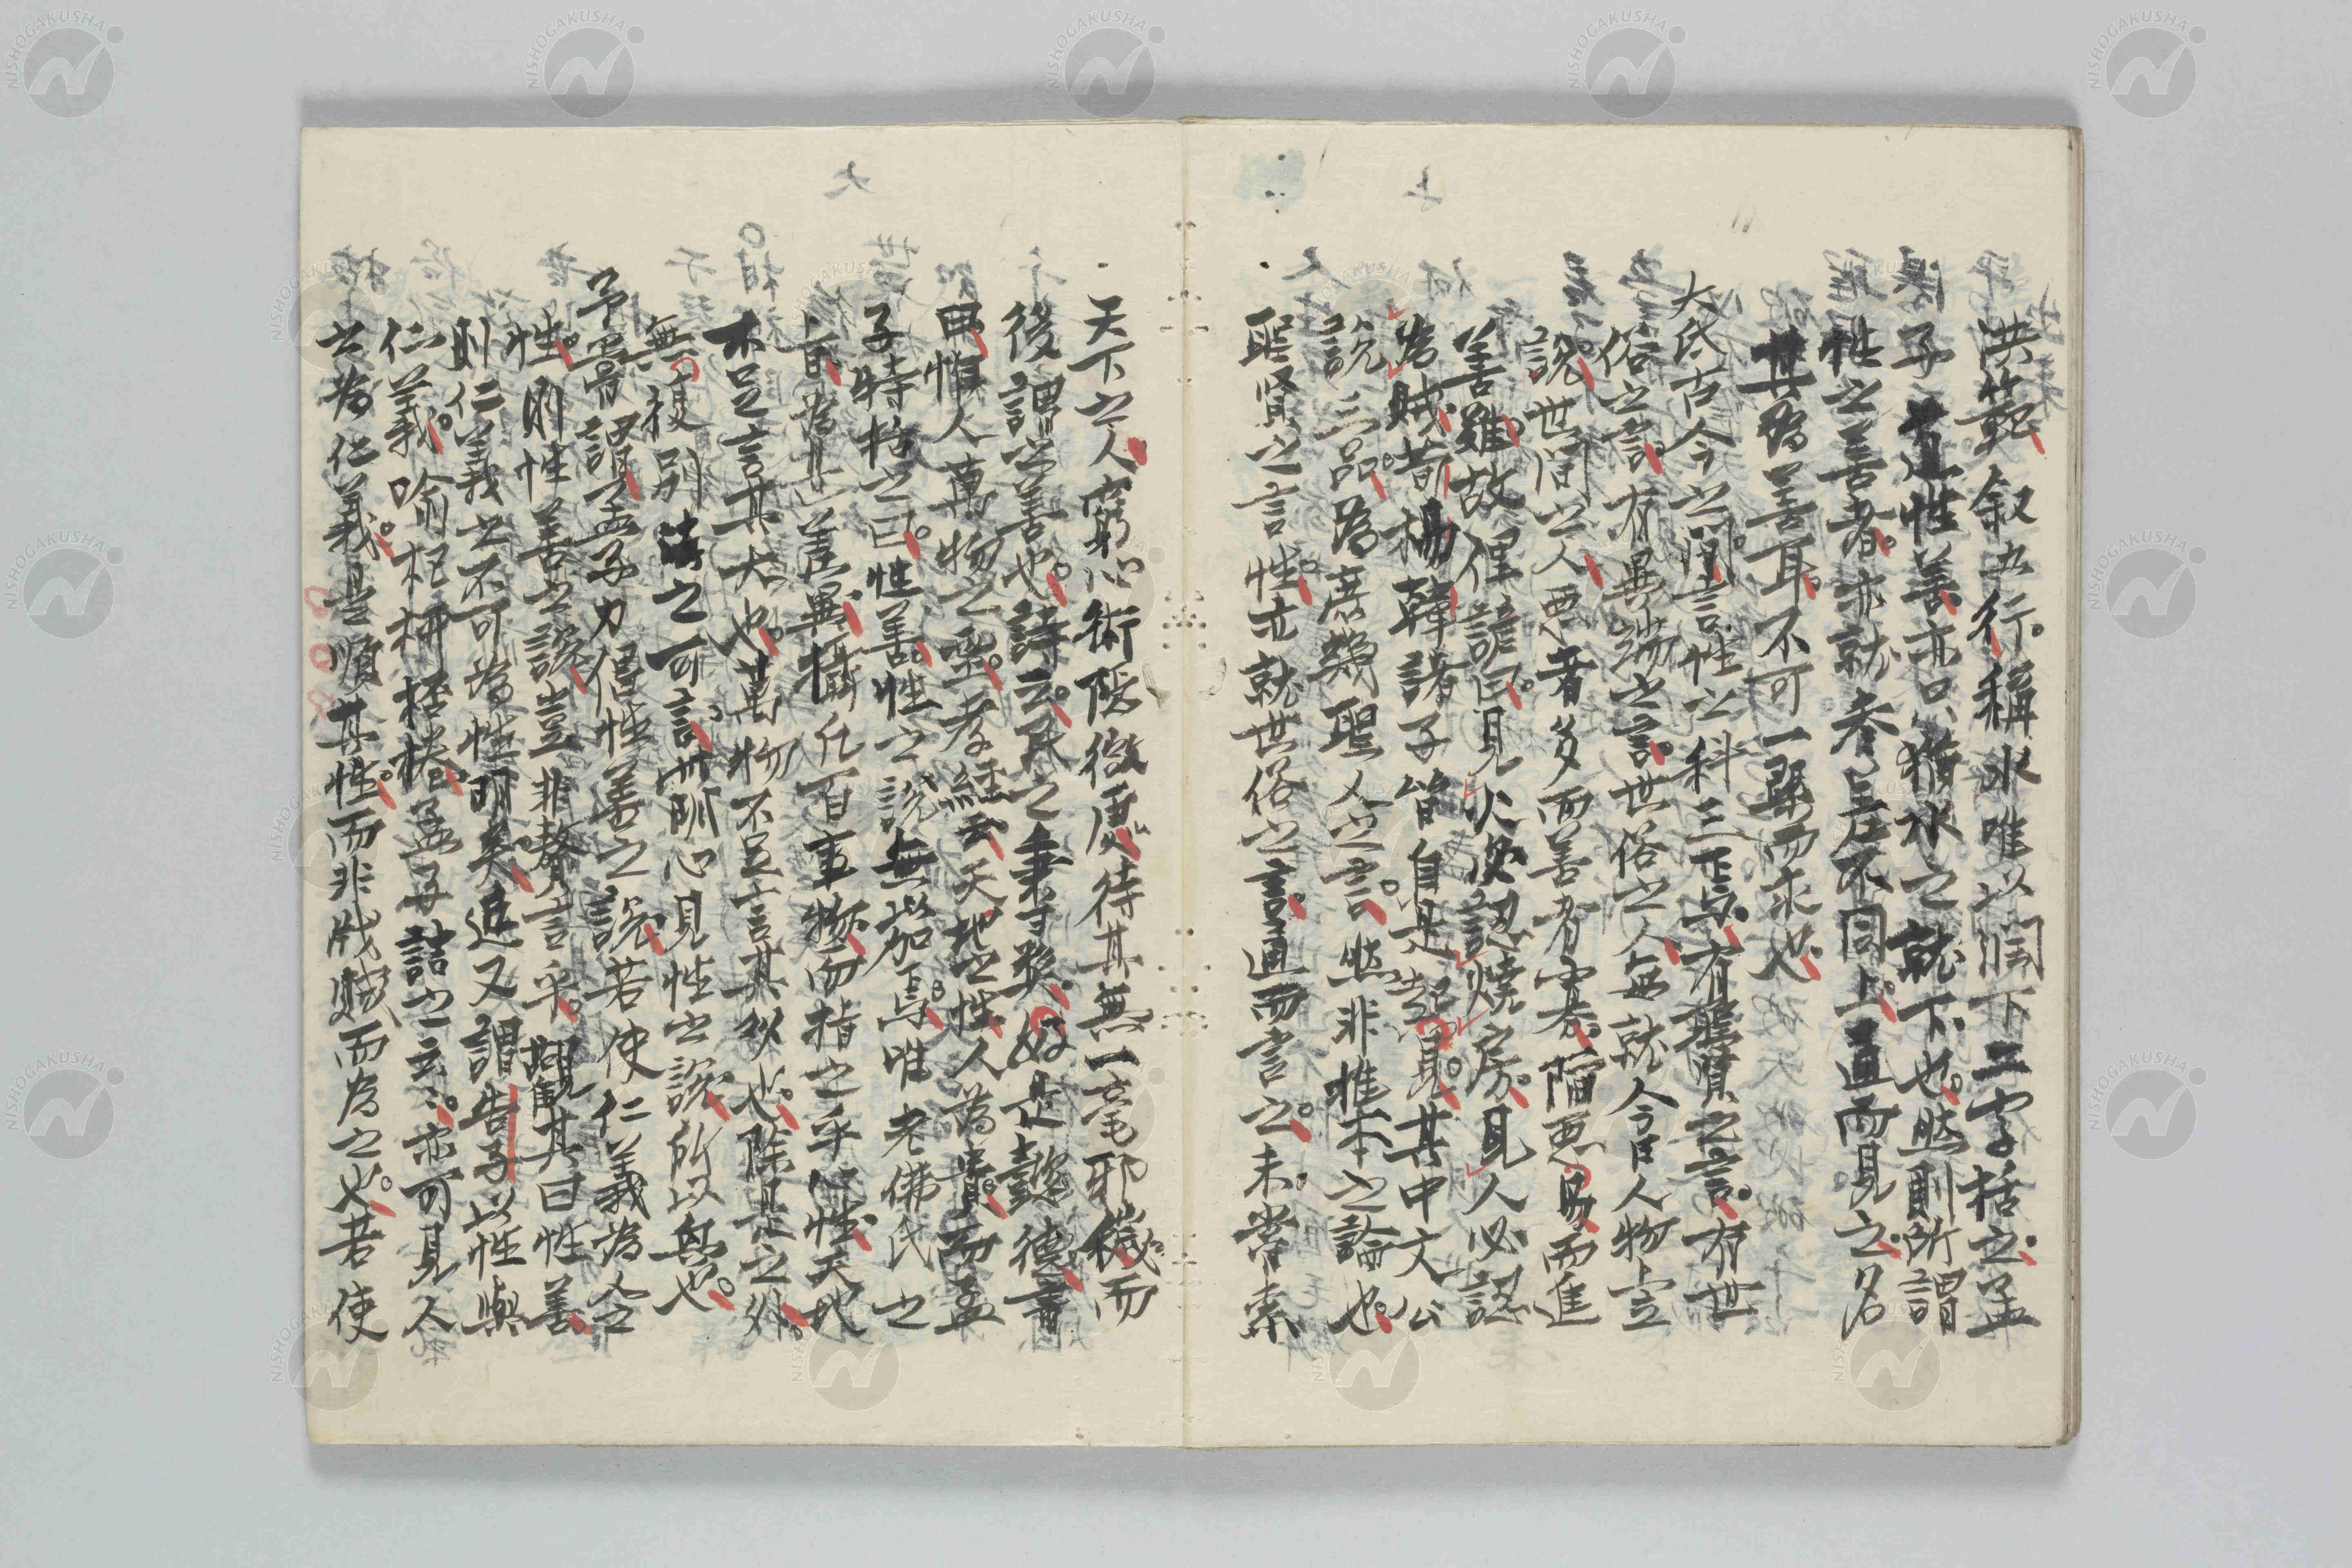 洪範叙五行稱水唯以潤下二字括之孟
子道性善亦只猶水之就下也然則所謂
性之善者亦就養居不同上直而見之名
其為善耳不可一槩而求也
大氐古今之間言性之科三下与有聖賢之言有世
俗之言有異端之言世俗之人每就今日人物立
說世間之人惡者多而善者寡陷惡易而進
善難故俚諺曰見火必認燒之房見人必認
為賊荀楊韓諸子皆自是起見其中文公
說三品為庶幾聖人之言然非惟本之論也
聖賢之言性亦就世俗之言通而言之未嘗索
天下之人窮心術隱微處待其無一毫邪穢而
後謂之善也詩云民之秉彝好是懿德書
曰惟人萬物之靈孝經云天地之性人為貴而孟
子特括之曰性善性之說無以加焉唯老佛氏之
旨為其善異攝化百事物而指之乎心性天地
不足言其大也萬物不足言其多也除是之外
無復別法之可言明心見性之說所以興也
予嘗謂孟子力倡性善之說若使仁義為人之
性則性善之說豈非贅言乎觀其曰性善
則仁義之不可為性明矣進又謂告子以性與
仁義喻杞柳桮棬孟子詰之云云亦可見人
之為仁義是順其性而非戕賊而為之也若使
NISHOGAKUSHA